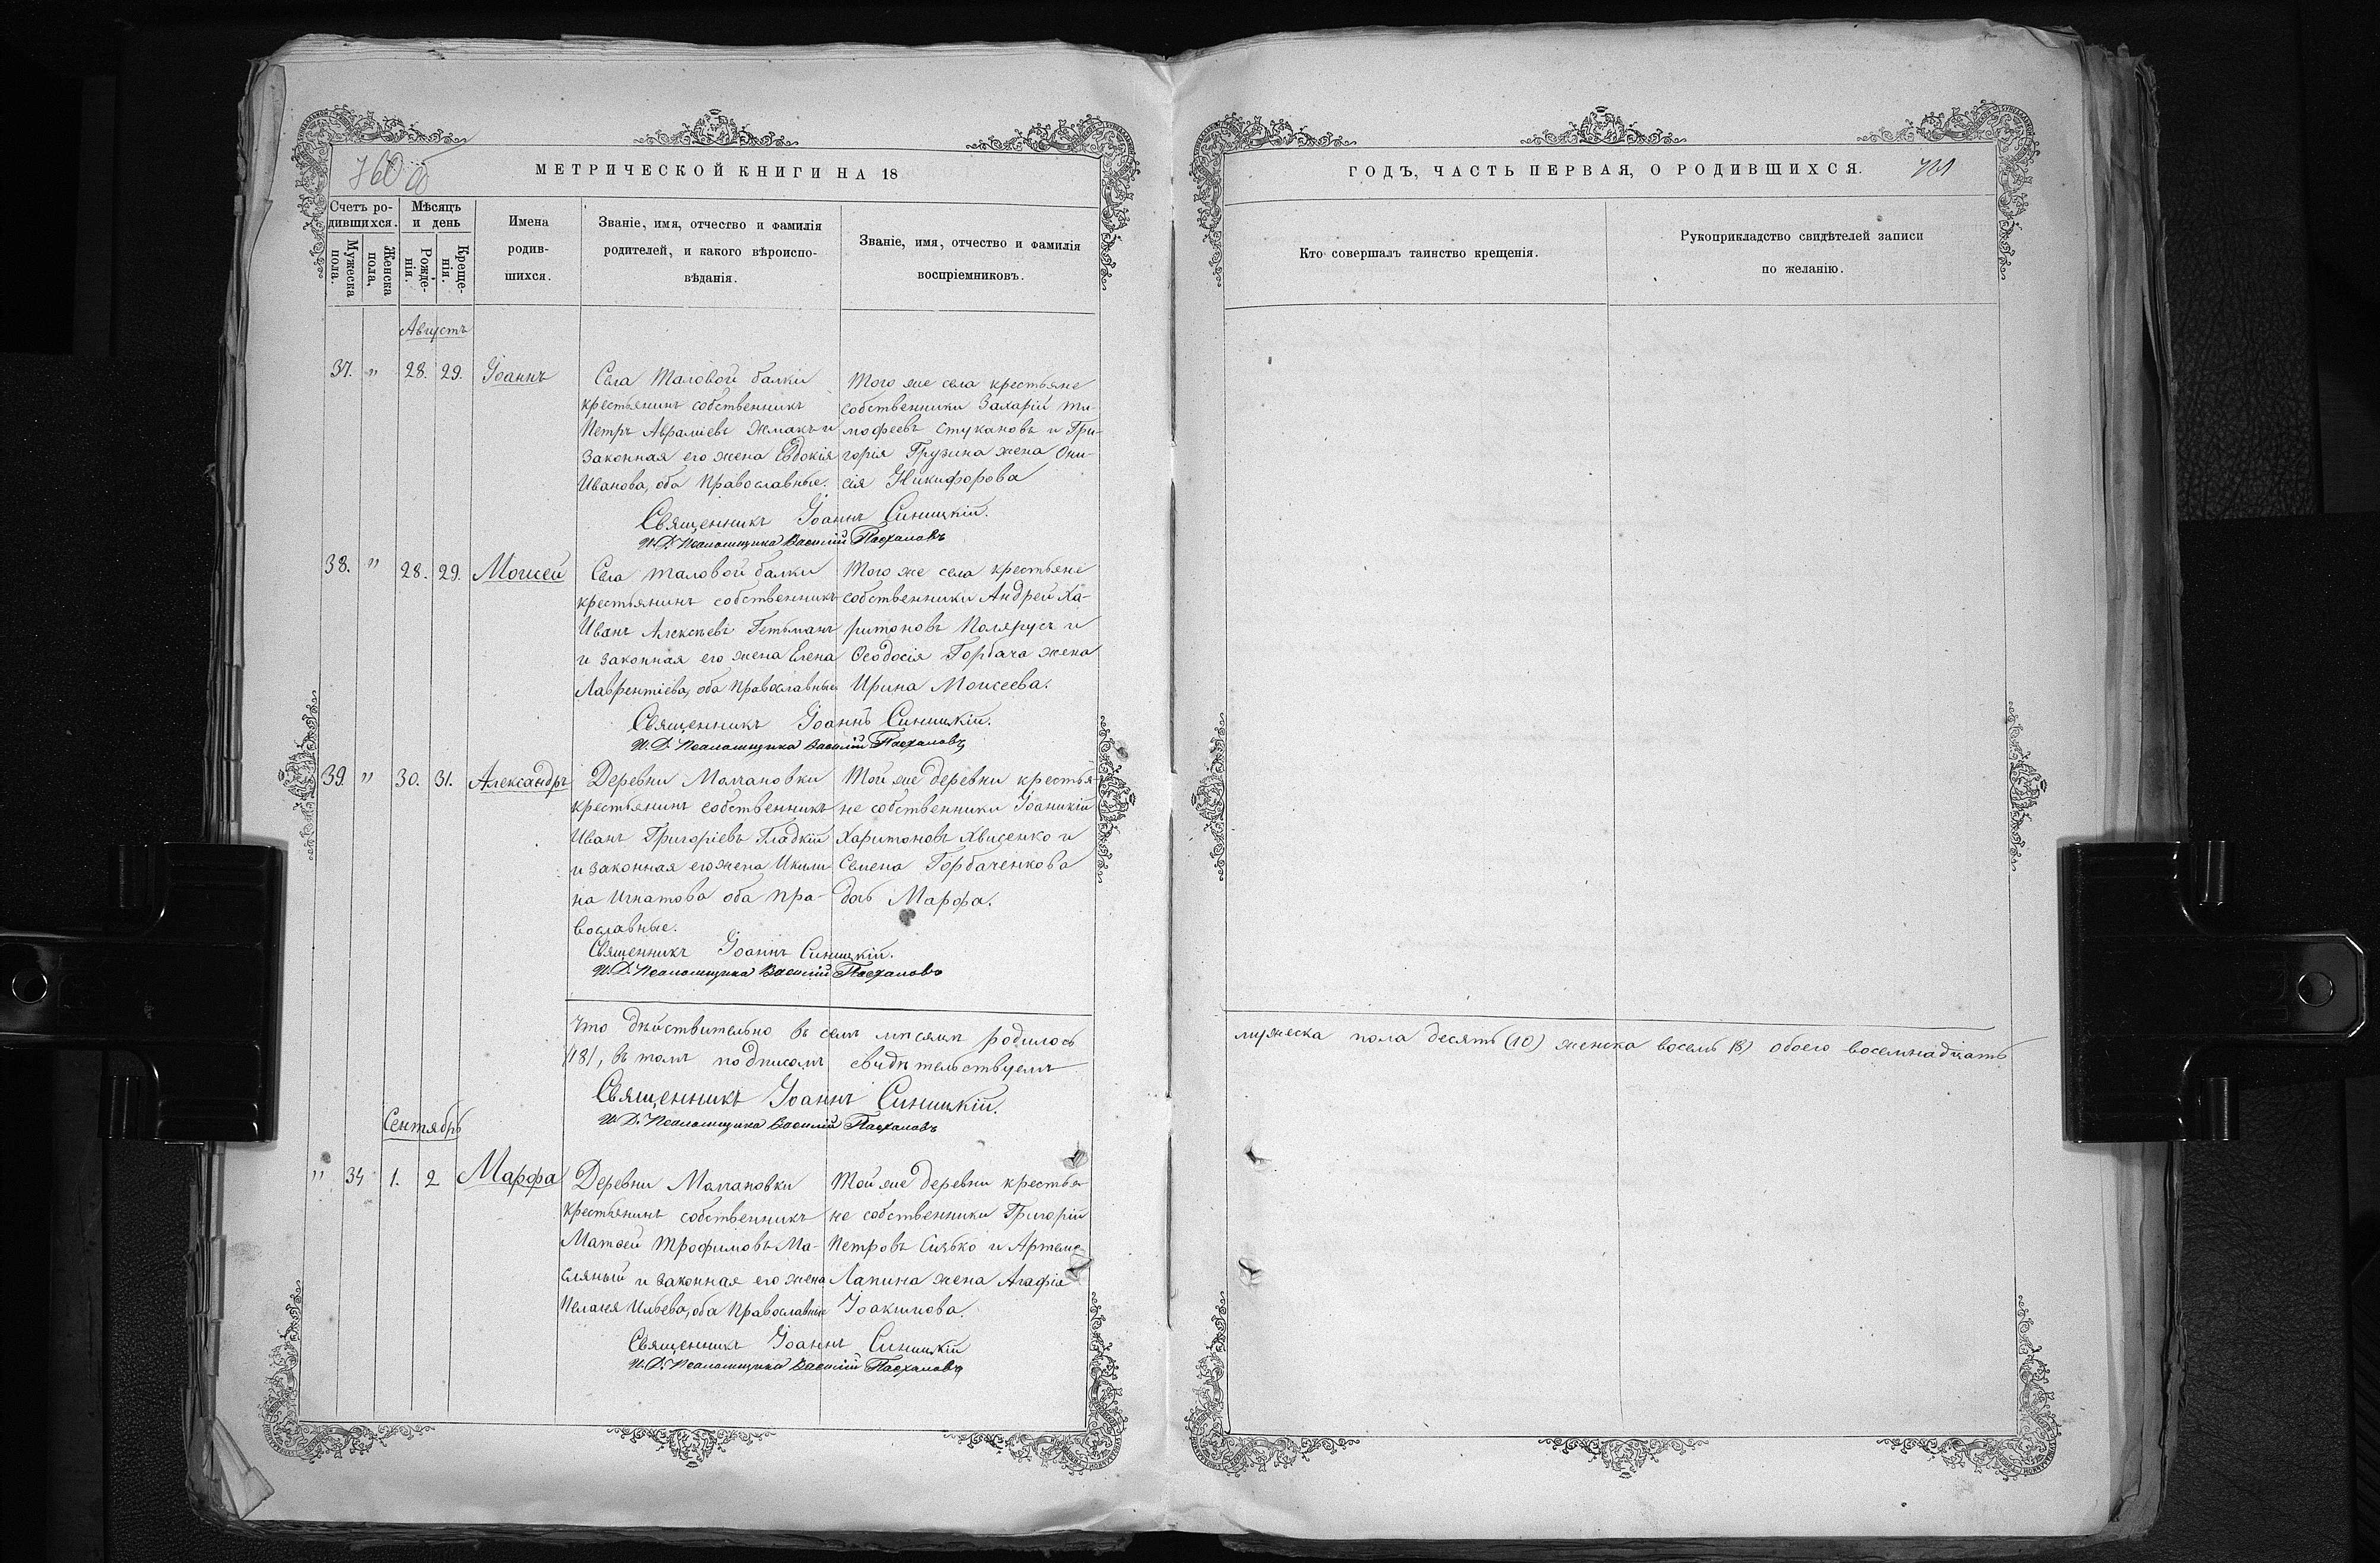 760 об
МЕТРИЧЕСКОЙ КНИГИ НА 18
Счетъ ро-
дившихся.
Мужеска
пола.
Женска
пола,
Мѣсяцъ
и день
Рожде-
нія.
Креще-
нія.
Имена
родив-
шихся.
Званіе, имя, отчество и фамилія
родителей, и какого вѣроиспо-
вѣданія.
Званіе, имя, отчество и фамилія
воспріемниковъ.
Августъ
37. " 28. 29. Іоаннъ
Села Таловой балки
крестьянинъ собственникъ
Петръ Авраміевъ Жмакъ и
законная его жена Евдокія
Иванова, оба Православные.
Того же села крестьяне
собственники Захарій Ти-
мофеевъ Стукановъ и Гри-
горія Грузина жена Они-
сія Никифорова
Священникъ Іоаннъ Синицкій.
И. Д. Псаломщика Василій Пасхаловъ
38. " 28. 29. Моисей
Села Таловой балки
крестьянинъ собственникъ
Иванъ Алексѣевъ Гетьманъ
и законная его жена Елена
Лаврентіева, оба Православные
Того же села крестьяне
собственники Андрей Ха-
ритоновъ Полярусъ и
Ѳеодосія Горбача жена
Ирина Моисеева.
Священникъ Іоаннъ Синицкій.
И. Д. Псаломщика Василій Пасхаловъ
39. " 30. 31. Александръ
Деревни Молчановки
крестьянинъ собственникъ
Иванъ Григоріевъ Гладкій
и законная его жена Икили-
на Игнатова оба Пра-
вославные.
Той же деревни крестья-
не собственники Іоаникій
Харитоновъ Хвисенко и
Семена Горбаченкова
дочь Марфа.
Священникъ Іоаннъ Синицкій.
И. Д. Псаломщика Василій Пасхаловъ
Что дѣйствительно въ семъ мѣсяцѣ родилось
(18), въ томъ подписомъ свидѣтельствуемъ
Священникъ Іоаннъ Синицкій.
И. Д. Псаломщика Василій Пасхаловъ
Сентябрь
" 34 1. 2 Марфа
Деревни Молчановки
крестьянинъ собственникъ
Матѳей Трофимовъ Ма-
сляный и законная его жена
Пелагея Ильева, оба Православные
Той же деревни крестья-
не собственники Григорій
Петровъ Сиябко и Артема
Лапина жена Агафія
Іоакимова.
Священникъ Іоаннъ Синицкій
И. Д. Псаломщика Василій Пасхаловъ
ГОДЪ, ЧАСТЬ ПЕРВАЯ, О РОДИВШИХСЯ.
761
Кто совершалъ таинство крещенія.
Рукоприкладство свидѣтелей записи
по желанію.
мужеска пола десять (10) женска восемь (8) обоего восемнадцать